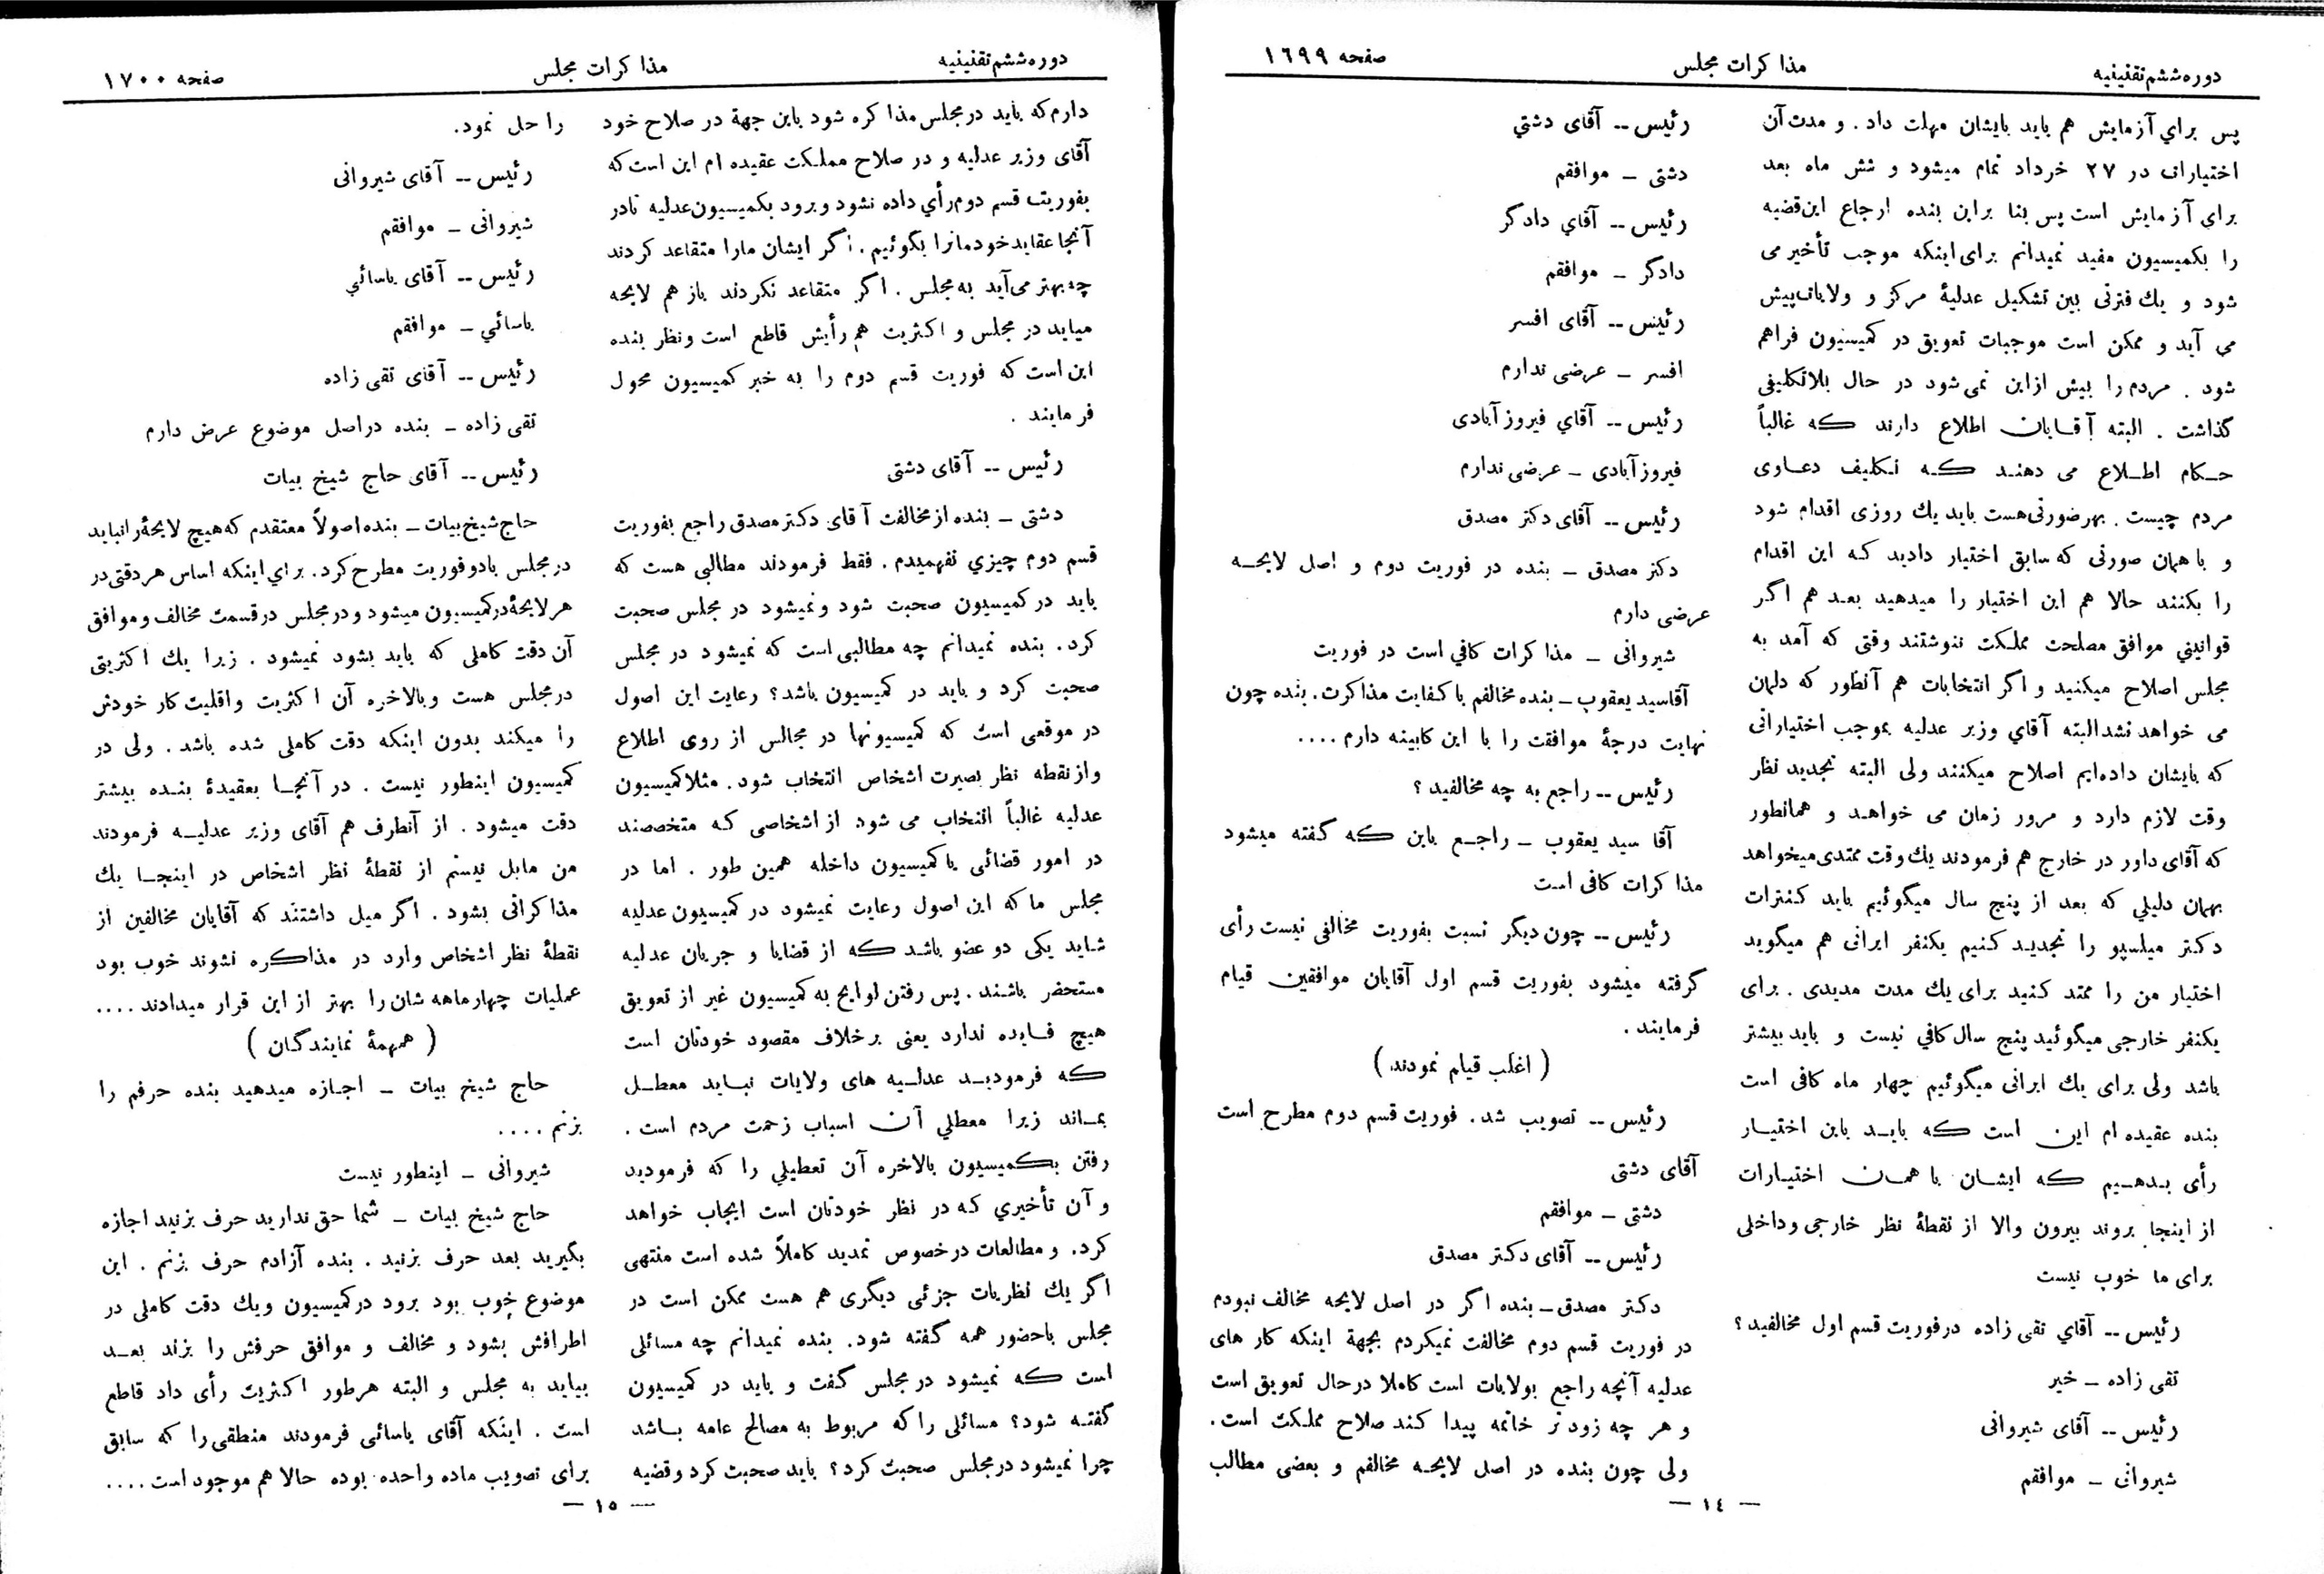 دوره ششم تقنینیه
مذاکرات مجلس
صفحه ۱٦۹۹
پس برای آزمایش هم باید بایشان مهلت داد . و مدت آن
اختیارات در ۲۷ خرداد تمام میشود و شش ماه بعد
برای آزمایش است پس بنا براین بنده ارجاع این قضیه
را بکمیسیون مفید نمیدانم برای اینکه موجب تأخیر می
شود و یك فترتی بین تشکیل عدلیهٔ مرکز و ولایات پیش
می آید و ممکن است موجبات تعویق در کمیسیون فراهم
شود . مردم را بیش ازاین نمی شود در حال بلاتکلیفی
گذاشت . البته آقایان اطلاع دارند که غالباً
حکام اطلاع می دهند که تکلیف دعاوی
مردم چیست . بهرصورتی هست باید یك روزی اقدام شود
و با همان صورتی که سابق اختیار دادید که این اقدام
را بکنند حالا هم این اختیار را میدهید بعد هم اگر
قوانینی موافق مصلحت مملکت ننوشتند وقتی که آمد به
مجلس اصلاح میکنید و اگر انتخابات هم آنطور که دلمان
می خواهد نشد البته آقای وزیر عدلیه بموجب اختیاراتی
که بایشان داده‌ایم اصلاح میکنند ولی البته تجدید نظر
وقت لازم دارد و مرور زمان می خواهد و همانطور
که آقای داور در خارج هم فرمودند یك وقت ممتدی میخواهد
بهمان دلیلی که بعد از پنج سال میگوئیم باید کنترات
دکتر میلسپو را تجدید کنیم یکنفر ایرانی هم میگوید
اختیار من را ممتد کنید برای یك مدت مدیدی . برای
یکنفر خارجی میگوئید پنج سال کافی نیست و باید بیشتر
باشد ولی برای یك ایرانی میگوئیم چهار ماه کافی است
بنده عقیده ام این است که باید باین اختیار
رأی بدهیم که ایشان با همان اختیارات
از اینجا بروند بیرون والا از نقطهٔ نظر خارجی و داخلی
برای ما خوب نیست
رئیس -- آقای تقی زاده درفوریت قسم اول مخالفید ؟
تقی زاده - خیر
رئیس -- آقای شیروانی
شیروانی - موافقم
رئیس -- آقای دشتی
دشتی - موافقم
رئیس -- آقای دادگر
دادگر - موافقم
رئیس -- آقای افسر
افسر - عرضی ندارم
رئیس -- آقای فیروز آبادی
فیروز آبادی - عرضی ندارم
رئیس -- آقای دکتر مصدق
دکتر مصدق - بنده در فوریت دوم و اصل لایحه
عرضی دارم
شیروانی - مذاکرات کافی است در فوریت
آقاسید یعقوب - بنده مخالفم با کفایت مذاکرت . بنده چون
نهایت درجهٔ موافقت را با این کابینه دارم ....
رئیس -- راجع به چه مخالفید ؟
آقا سید یعقوب - راجع باین که گفته میشود
مذاکرات کافی است
رئیس -- چون دیگر نسبت بفوریت مخالفی نیست رأی
گرفته میشود بفوریت قسم اول آقایان موافقین قیام
فرمایند .
( اغلب قیام نمودند )
رئیس -- تصویب شد . فوریت قسم دوم مطرح است
آقای دشتی
دشتی - موافقم
رئیس -- آقای دکتر مصدق
دکتر مصدق - بنده اگر در اصل لایحه مخالف نبودم
در فوریت قسم دوم مخالفت نمیکردم بجهة اینکه کار های
عدلیه آنچه راجع بولایات است کاملا درحال تعویق است
و هر چه زود تر خاتمه پیدا کند صلاح مملکت است .
ولی چون بنده در اصل لایحه مخالفم و بعضی مطالب
— ۱٤ —
دوره ششم تقنینیه
مذاکرات مجلس
صفحه ۱۷۰۰
دارم که باید درمجلس مذاکره شود باین جهة در صلاح خود
آقای وزیر عدلیه و در صلاح مملکت عقیده ام این است که
بفوریت قسم دوم رأی داده نشود و برود بکمیسیون عدلیه تادر
آنجا عقاید خودمانرا بگوئیم . اگر ایشان مارا متقاعد کردند
چه بهتر می‌آید به مجلس . اگر متقاعد نکردند باز هم لایحه
میاید در مجلس و اکثریت هم رأیش قاطع است و نظر بنده
این است که فوریت قسم دوم را به خبر کمیسیون محول
فرمایند .
رئیس -- آقای دشتی
دشتی - بنده از مخالفت آقای دکتر مصدق راجع بفوریت
قسم دوم چیزی نفهمیدم . فقط فرمودند مطالبی هست که
باید در کمیسیون صحبت شود و نمیشود در مجلس صحبت
کرد . بنده نمیدانم چه مطالبی است که نمیشود در مجلس
صحبت کرد و باید در کمیسیون باشد ؟ رعایت این اصول
در موقعی است که کمیسیونها در مجالس از روی اطلاع
واز نقطه نظر بصیرت اشخاص انتخاب شود . مثلا کمیسیون
عدلیه غالباً انتخاب می شود از اشخاصی که متخصصند
در امور قضائی یا کمیسیون داخله همین طور . اما در
مجلس ما که این اصول رعایت نمیشود در کمیسیون عدلیه
شاید یکی دو عضو باشد که از قضایا و جریان عدلیه
مستحضر باشند . پس رفتن لوایح به کمیسیون غیر از تعویق
هیچ فایده ندارد یعنی برخلاف مقصود خودتان است
که فرمودید عدلیه های ولایات نباید معطل
بماند زیرا معطلی آن اسباب زحمت مردم است .
رفتن بکمیسیون بالاخره آن تعطیلی را که فرمودید
و آن تأخیری که در نظر خودتان است ایجاب خواهد
کرد . و مطالعات درخصوص تمدید کاملاً شده است منتهی
اگر یك نظریات جزئی دیگری هم هست ممکن است در
مجلس باحضور همه گفته شود . بنده نمیدانم چه مسائلی
است که نمیشود درمجلس گفت و باید در کمیسیون
گفته شود ؟ مسائلی را که مربوط به مصالح عامه باشد
چرا نمیشود درمجلس صحبت کرد ؟ باید صحبت کرد و قضیه
را حل نمود .
رئیس -- آقای شیروانی
شیروانی - موافقم
رئیس -- آقای یاسائی
یاسائی - موافقم
رئیس -- آقای تقی زاده
تقی زاده - بنده دراصل موضوع عرض دارم
رئیس -- آقای حاج شیخ بیات
حاج شیخ بیات - بنده اصولاً معتقدم که هیچ لایحهٔ رانباید
درمجلس بادو فوریت مطرح کرد . برای اینکه اساس هر دقتی در
هر لایحهٔ درکمیسیون میشود و در مجلس در قسمت مخالف و موافق
آن دقت کاملی که باید بشود نمیشود . زیرا یك اکثریتی
درمجلس هست وبالاخره آن اکثریت واقلیت کار خودش
را میکند بدون اینکه دقت کاملی شده باشد . ولی در
کمیسیون اینطور نیست . در آنجا بعقیدهٔ بنده بیشتر
دقت میشود . از آنطرف هم آقای وزیر عدلیه فرمودند
من مایل نیستم از نقطهٔ نظر اشخاص در اینجا یك
مذاکراتی بشود . اگر میل داشتند که آقایان مخالفین از
نقطهٔ نظر اشخاص وارد در مذاکره نشوند خوب بود
عملیات چهارماهه شان را بهتر از این قرار میدادند ....
( همهمهٔ نمایندگان )
حاج شیخ بیات - اجازه میدهید بنده حرفم را
بزنم ....
شیروانی - اینطور نیست
حاج شیخ بیات - شما حق ندارید حرف بزنید اجازه
بگیرید بعد حرف بزنید . بنده آزادم حرف بزنم . این
موضوع خوب بود برود درکمیسیون ویك دقت کاملی در
اطرافش بشود و مخالف و موافق حرفش را بزند بعد
بیاید به مجلس و البته هرطور اکثریت رأی داد قاطع
است . اینکه آقای یاسائی فرمودند منطقی را که سابق
برای تصویب ماده واحده بوده حالا هم موجود است ....
— ۱۵ —